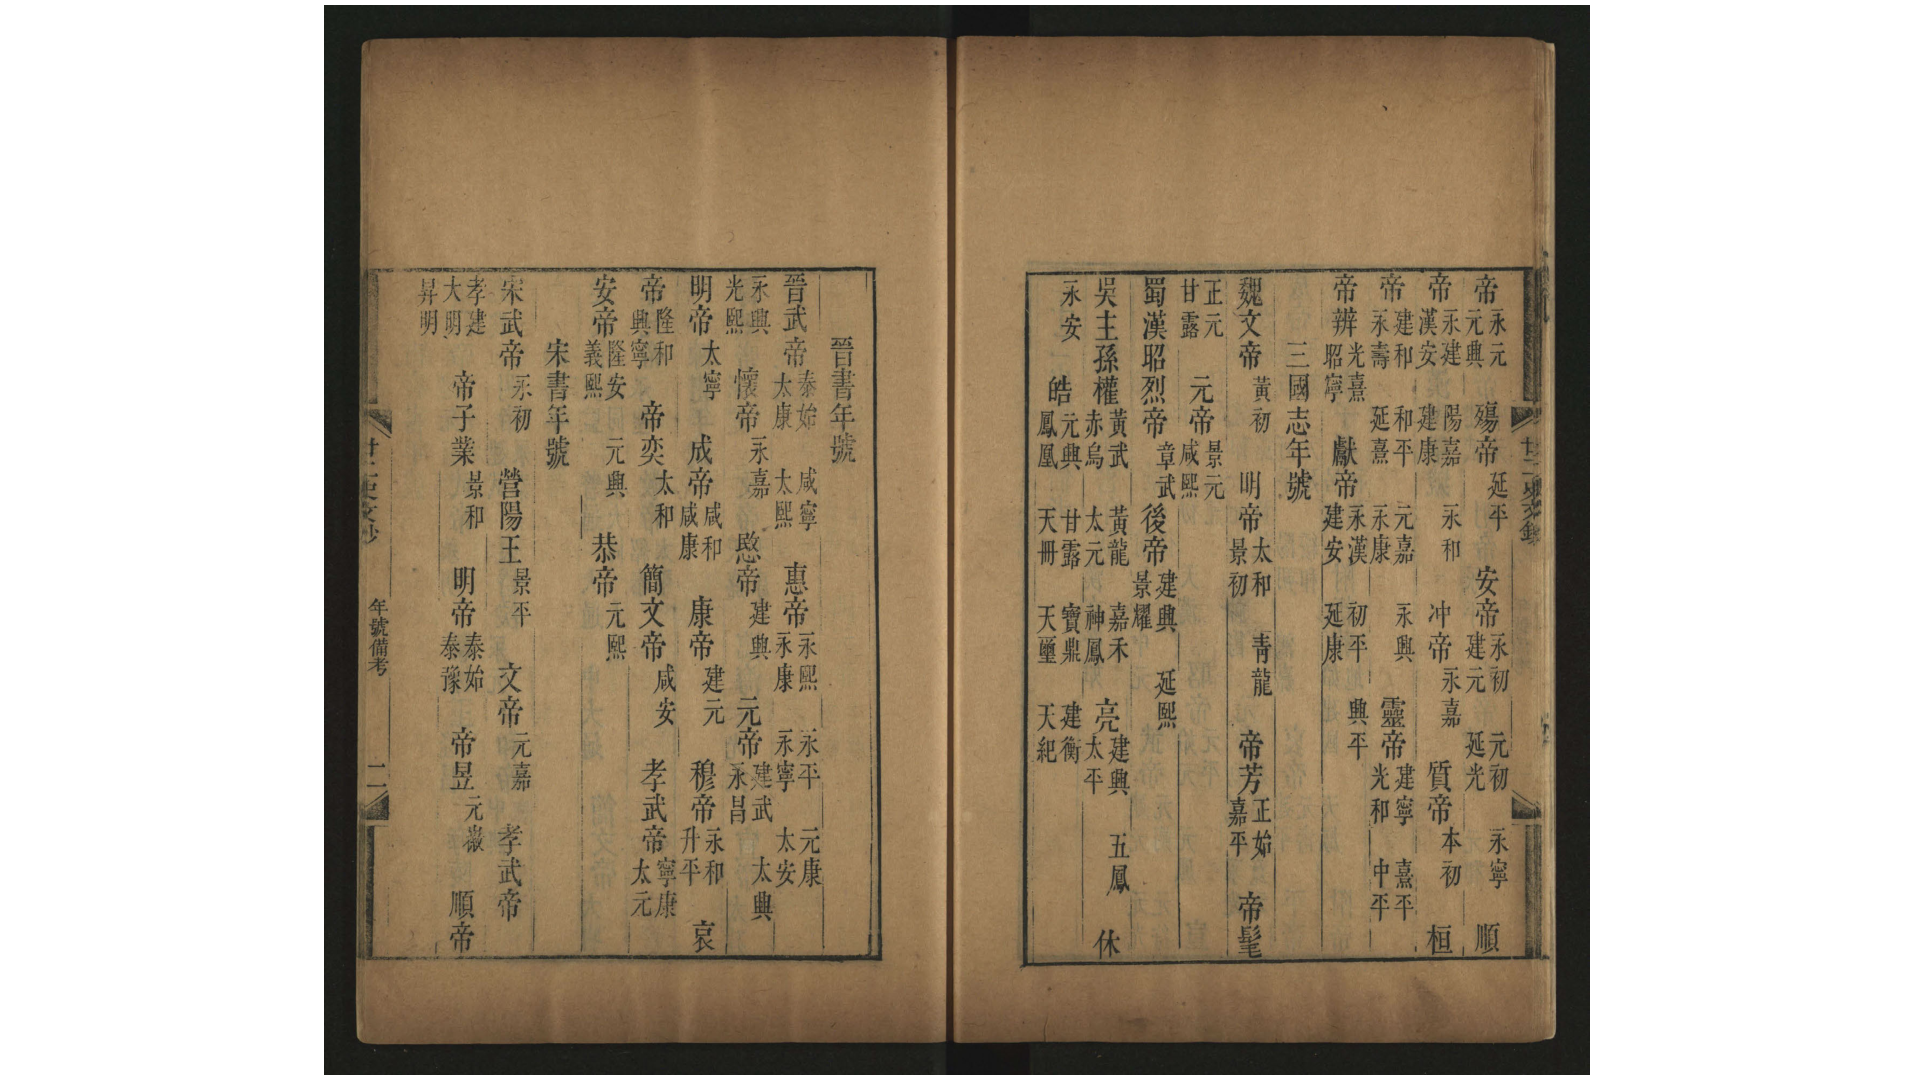 帝永元元興殤帝延平安帝永初元初永寧建元延光順
帝永建陽嘉永和漢安建康冲帝永嘉質帝本初桓
帝建和和平元嘉永興永壽延熹永康靈帝建寧熹平光和中平
帝辨光熹昭寧獻帝永漢初平興平建安延康
三國志年號
魏文帝黃初明帝太和青龍景初帝芳正始嘉平帝髦
正元甘露元帝景元咸熙
蜀漢昭烈帝章武後帝建興延熙景耀
吳主孫權黃武黃龍嘉禾赤烏太元神鳳亮建興五鳳太平休
永安皓元興甘露寶鼎建衡鳳凰天冊天璽天紀
晉書年號
晉武帝泰始咸寧太康太熙惠帝永熙永平元康永康永寧太安
永興光熙懷帝永嘉愍帝建興元帝建武太興永昌
明帝太寧成帝咸和咸康康帝建元穆帝永和升平哀
帝隆和興寧帝奕太和簡文帝咸安孝武帝寧康太元
安帝隆安元興義熙恭帝元熙
宋書年號
宋武帝永初營陽王景平文帝元嘉孝武帝
孝建大明帝子業景和明帝泰始泰豫帝昱元徽順帝
昇明
廿二史文鈔
年號備考
二